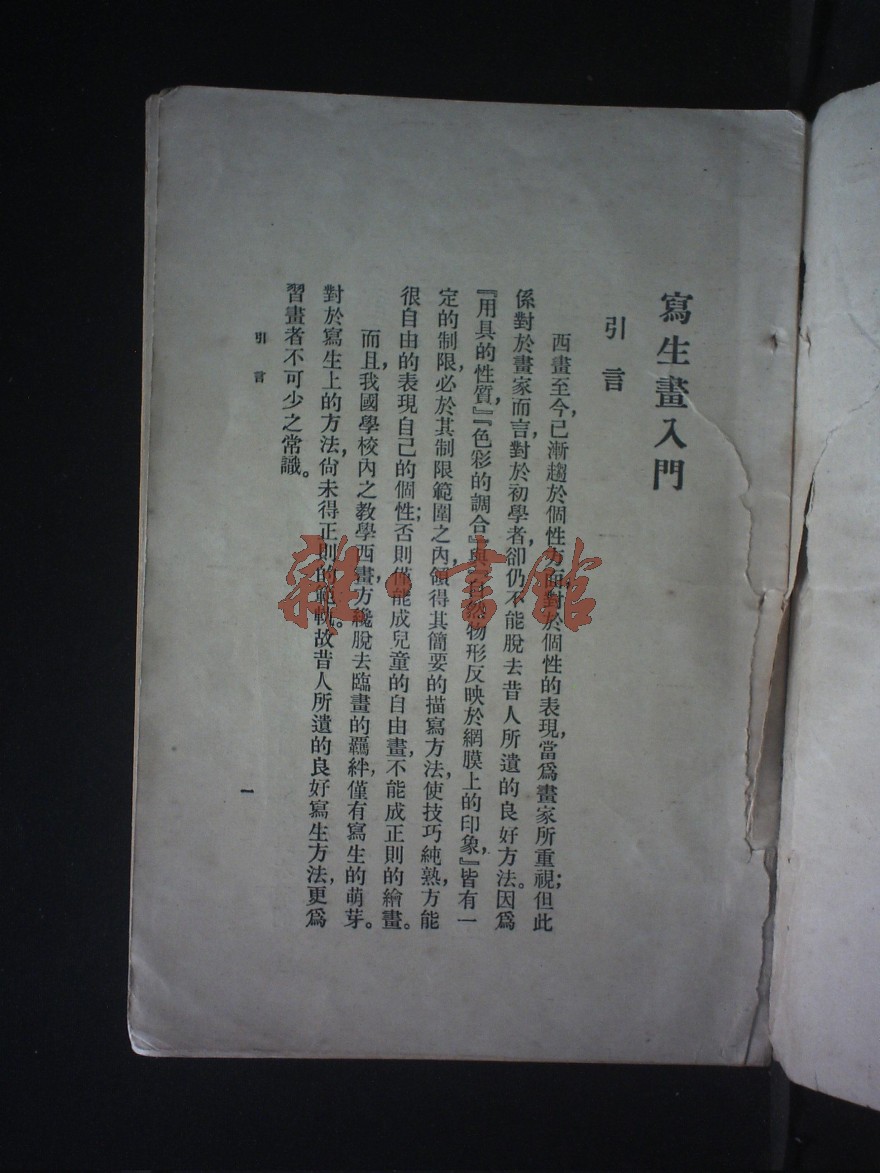 寫生畫入門
引言
西畫至今,已漸趨於個性方面,對於個性的表現,當爲畫家所重視;但此
係對於畫家而言,對於初學者,卻仍不能脫去昔人所遺的良好方法。因爲
『用具的性質,』『色彩的調合』與『自然物形反映於網膜上的印象,』皆有一
定的制限,必於其制限範圍之內,領得其簡要的描寫方法,使技巧純熟,方能
很自由的表現自己的個性;否則,僅能成兒童的自由畫,不能成正則的繪畫。
而且,我國學校內之教學西畫,方纔脫去臨畫的羈絆,僅有寫生的萌芽。
對於寫生上的方法,尙未得正則的範軌。故昔人所遺的良好寫生方法,更爲
習畫者不可少之常識。
引言
一
雜·書館